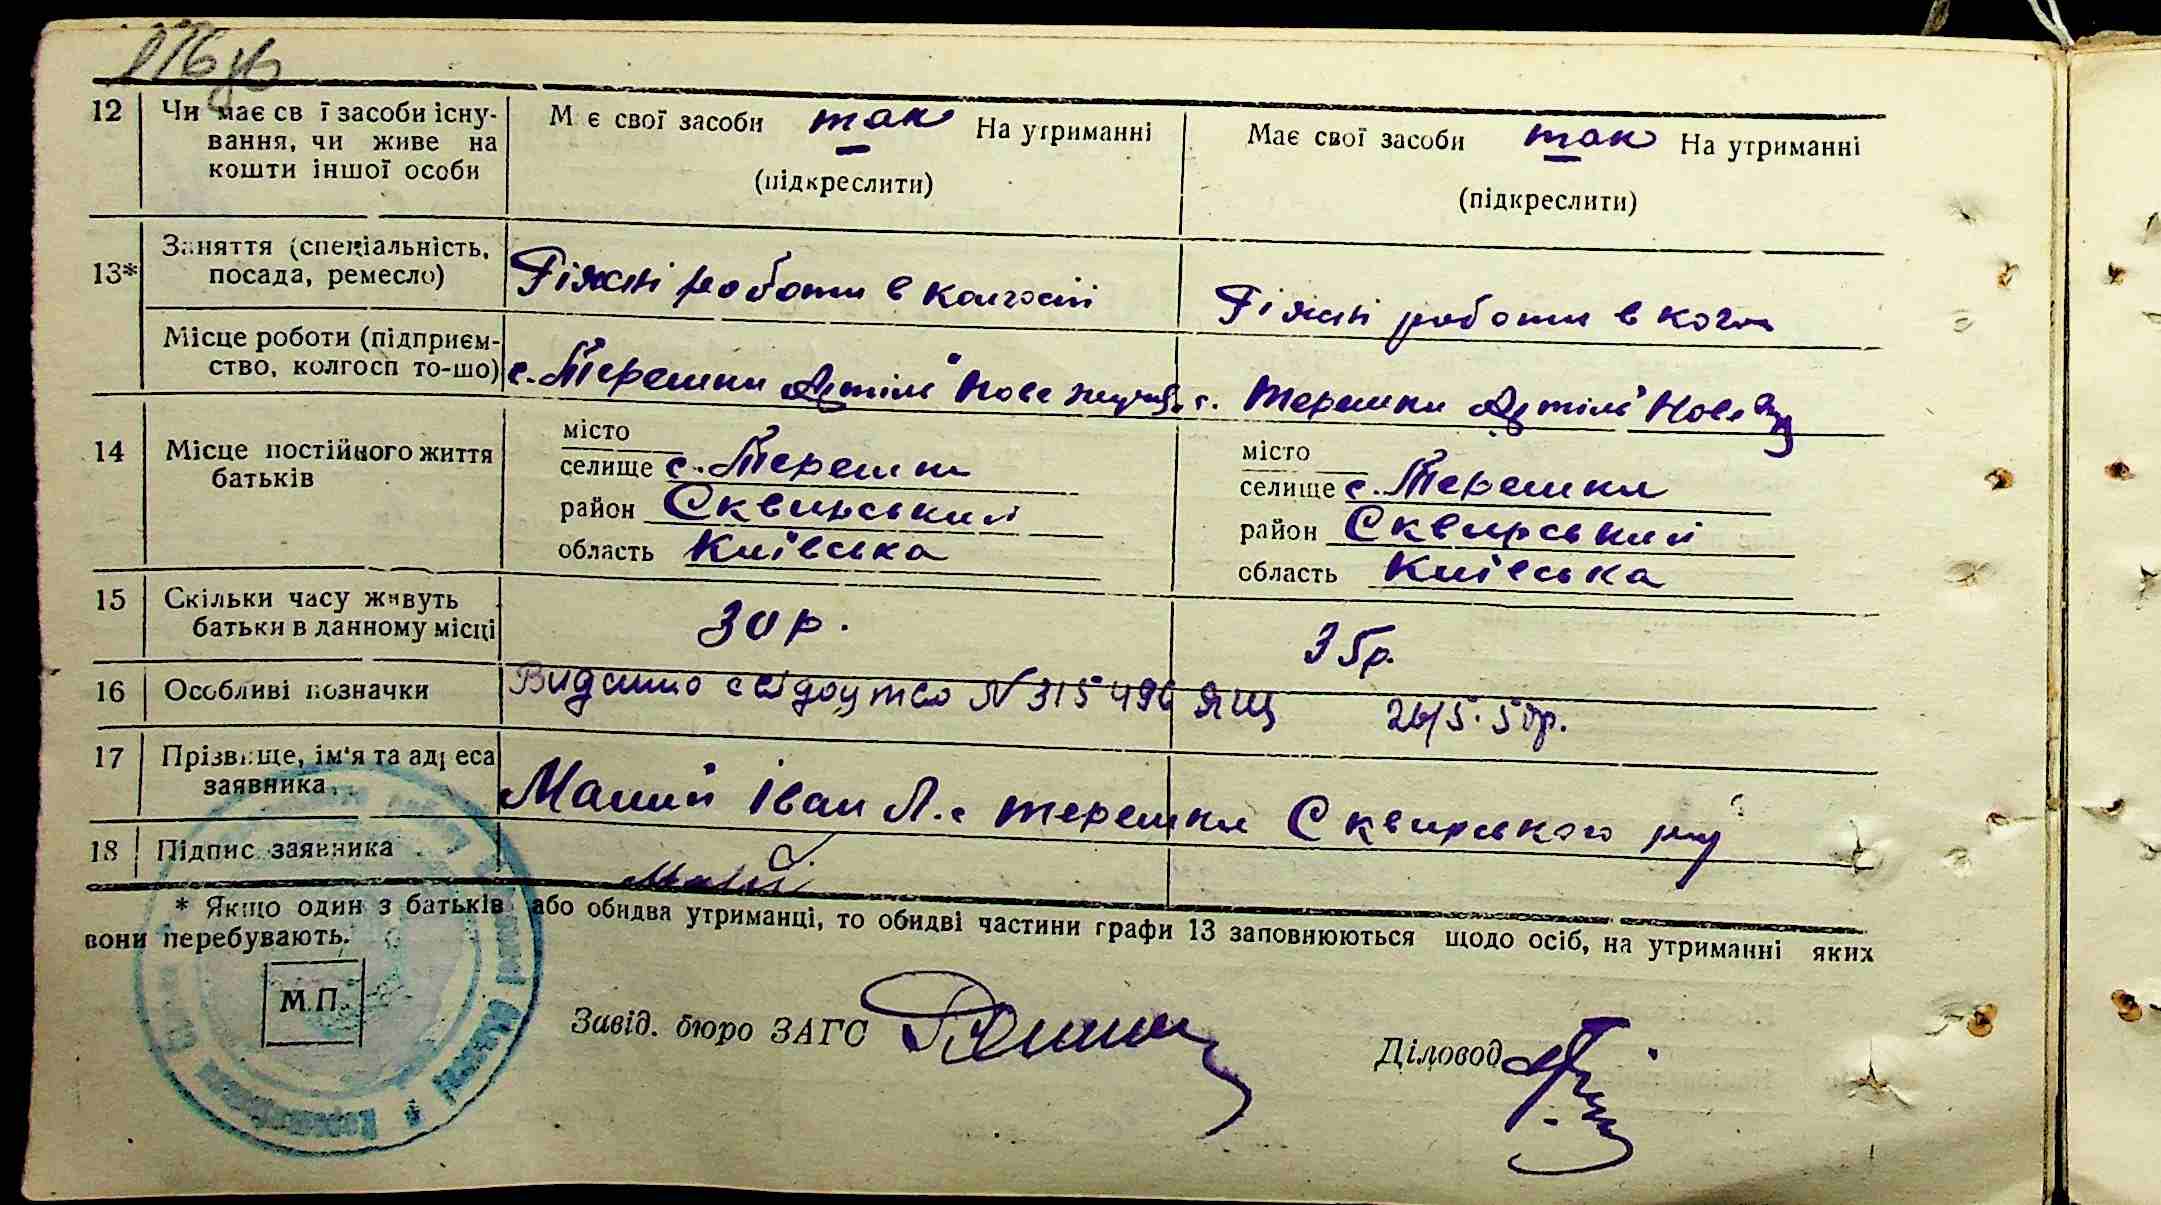 12 Чи має св ї засоби існу-
вання, чи живе на
кошти іншої особи
М є свої засоби так На утриманні
(підкреслити)
Має свої засоби так На утриманні
(підкреслити)
13* Заняття (спеціальність,
посада, ремесло)
Ріжні роботи в колгоспі
Ріжні роботи в
Місце роботи (підприєм-
ство, колгосп то-що)
с. Терешки Артіль "Нове
с. Терешки Артіль "Нове
14 Місце постійного життя
батьків
місто
селище с. Терешки
район Сквирський
область Київська
місто
селище с. Терешки
район Сквирський
область Київська
15 Скільки часу живуть
батьки в данному місці
30 р.
35р.
16 Особливі позначки
Видано свідоцтво N 315496 ЯЩ 26/5. 50р.
17 Прізвище, ім'я та адреса
заявника
Малий Іван Л. с Терешки Сквирського р-ну
18 Підпис заявника
Малий
* Якщо один з батьків або обидва утриманці, то обидві частини графи 13 заповнюються щодо осіб, на утриманні яких
вони перебувають.
М.П.
Завід. бюро ЗАГС
Діловод